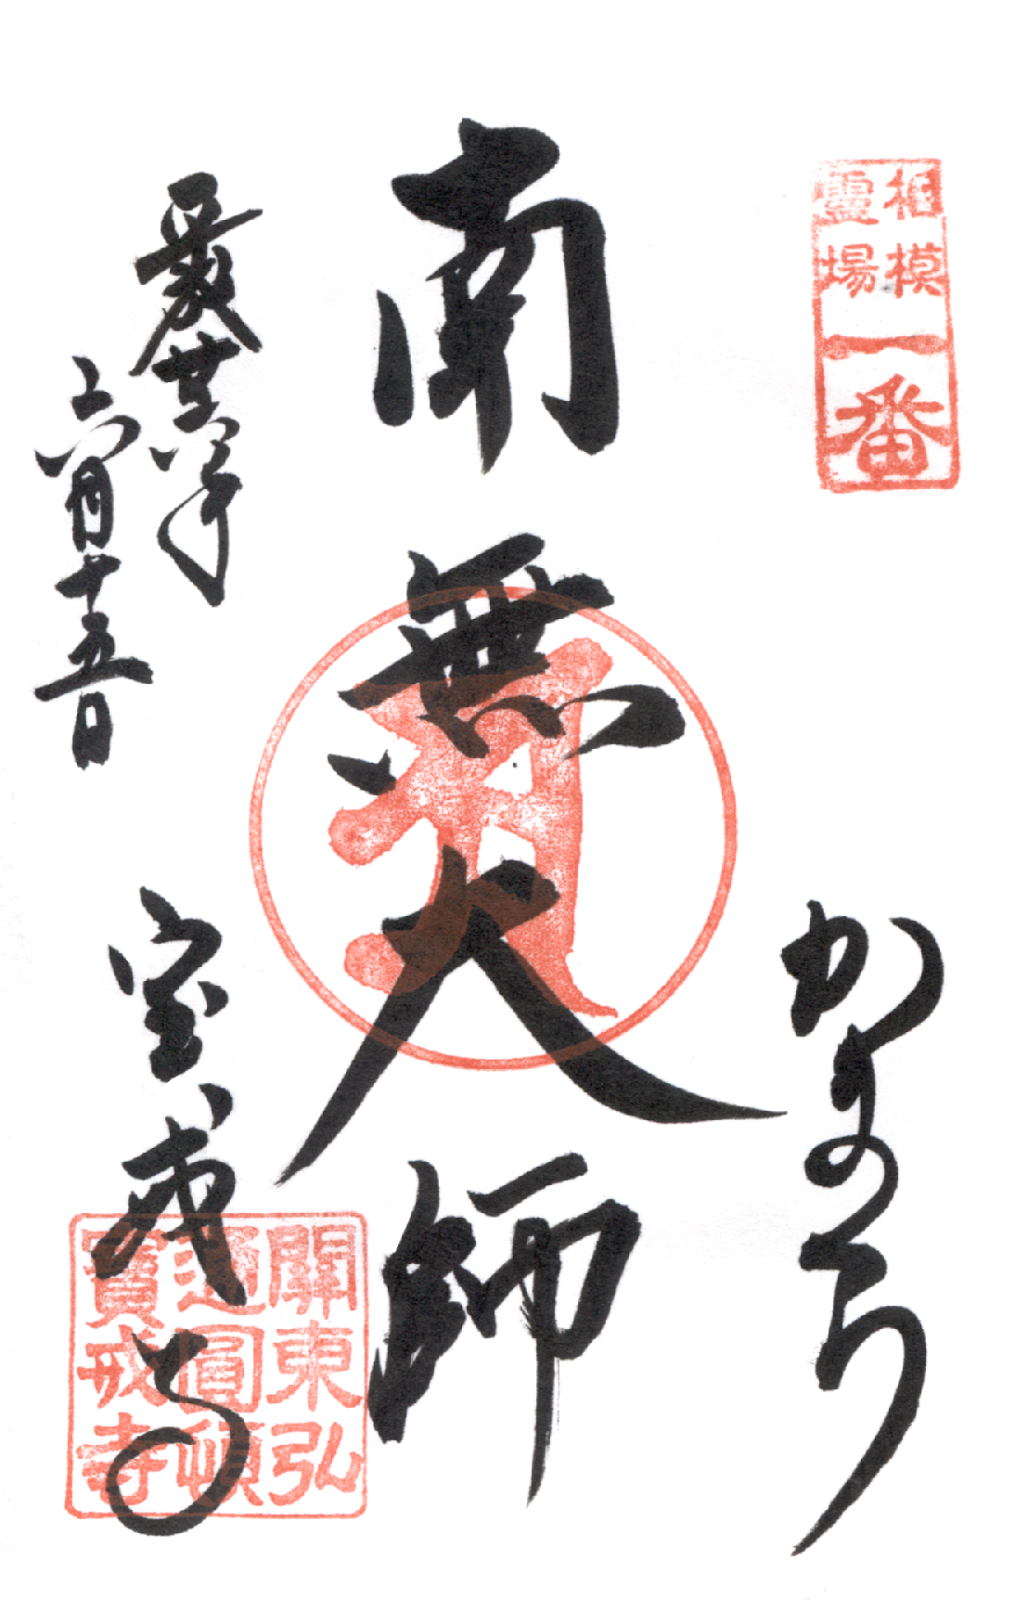 相模
靈場
一番
かまくら
南無大師
廿六年
六月十五日
宝戒寺
關東弘
通圓頓
寶戒寺